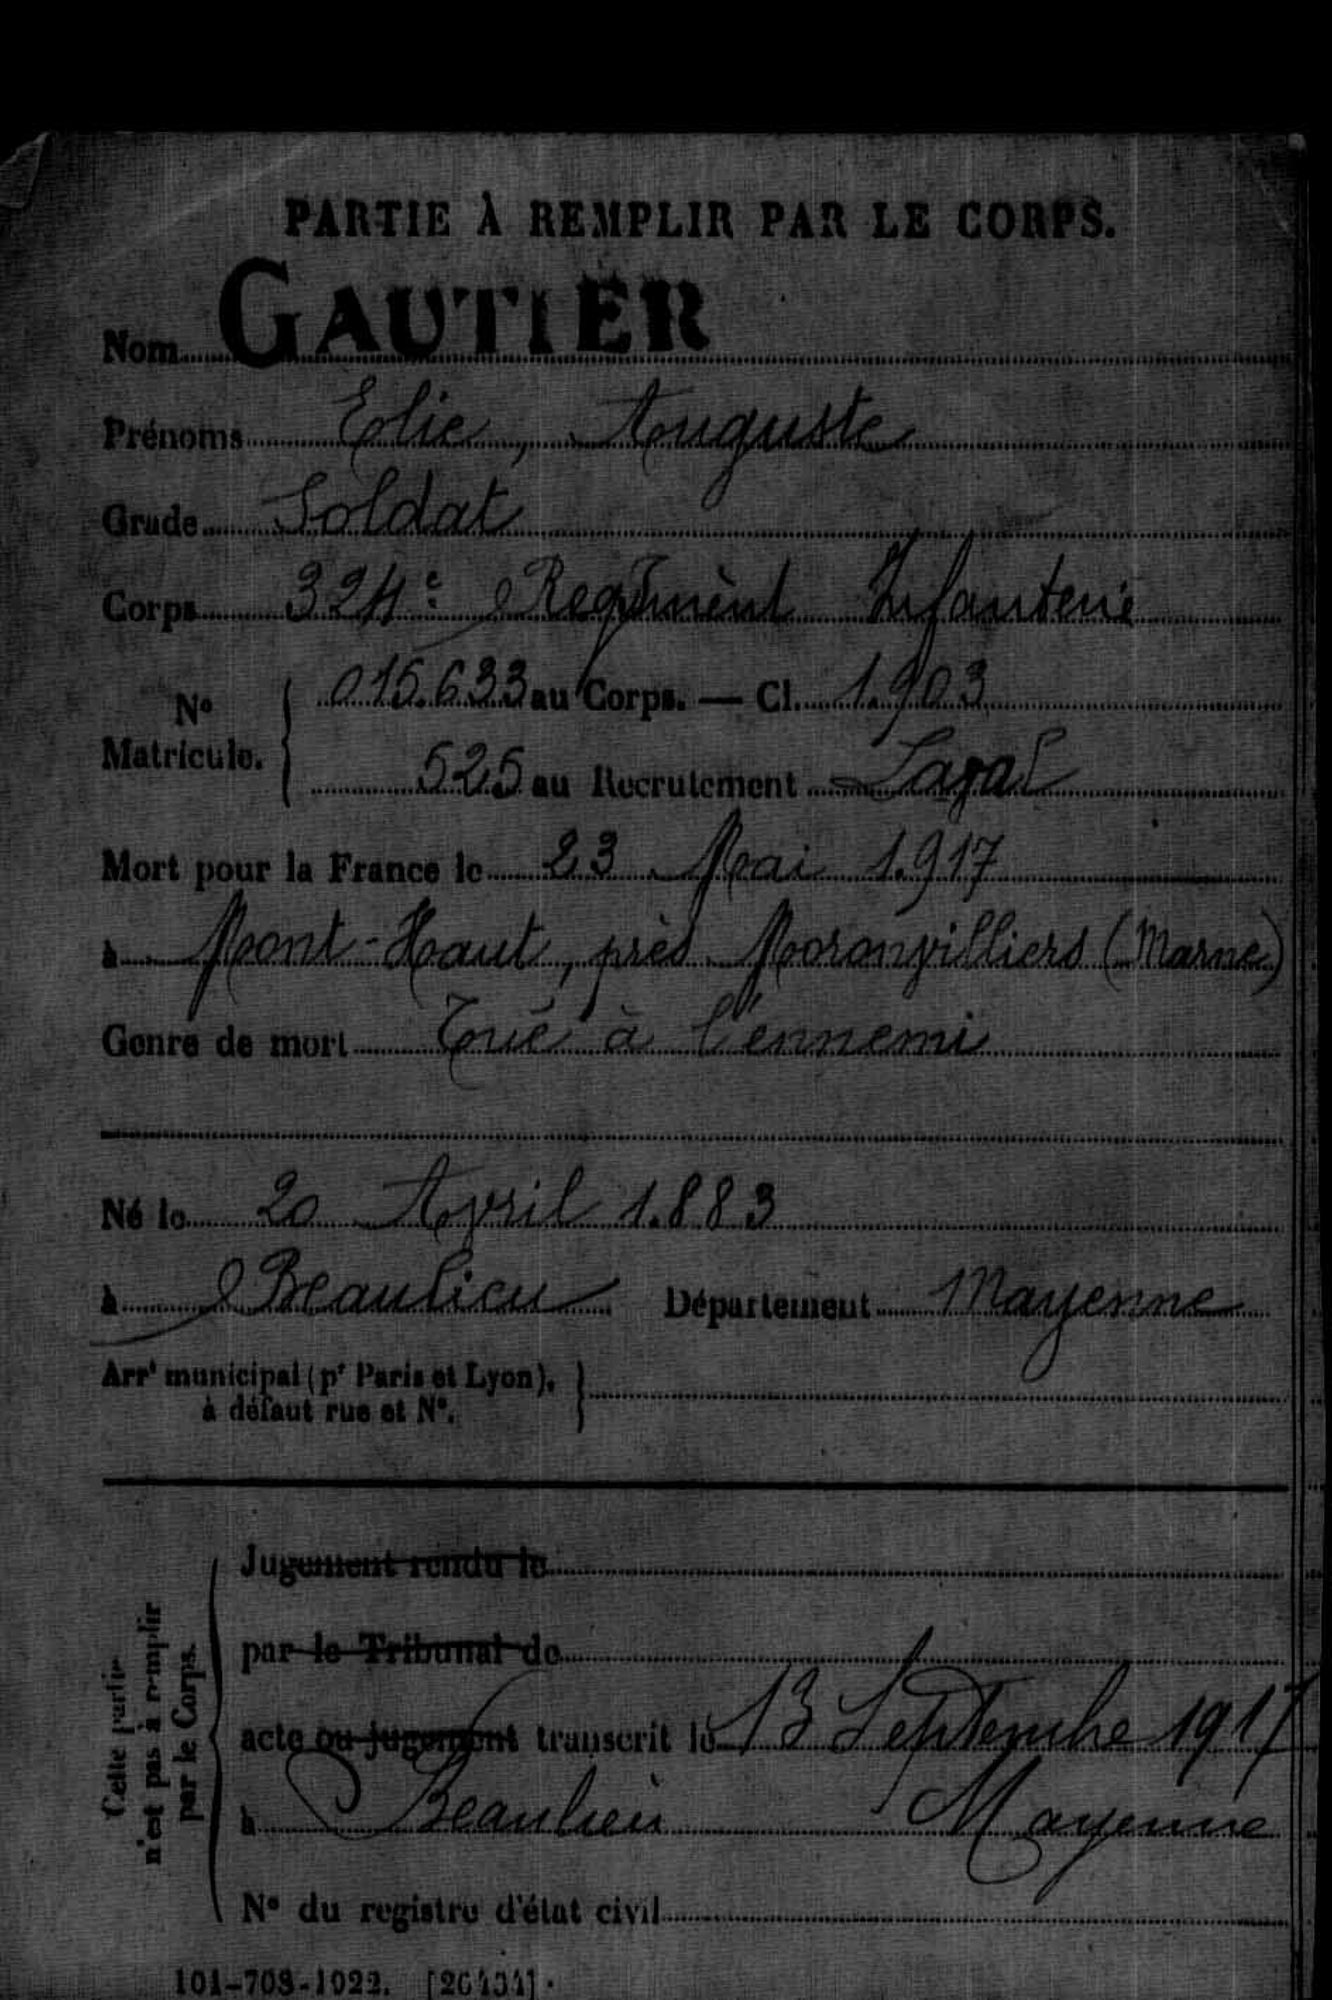 PARTIE À REMPLIR PAR LE CORPS.
Nom GAUTIER
Prénoms Elie, Auguste
Grade Soldat
Corps 324e Régiment Infanterie
No Matricule. { 015.633 au Corps. — Cl. 1.903
525 au Recrutement Laval
Mort pour la France le 23 Mai 1.917
à Mont-Haut, près Moronvilliers (Marne)
Genre de mort Tué à l'ennemi
Né le 20 Avril 1.883
à Beaulieu Département Mayenne
Arrt municipal (pr Paris et Lyon),
à défaut rue et No.
Cette partie
n'est pas à remplir
par le Corps.
Jugement rendu le
par le Tribunal de
acte ou jugement transcrit le 13 Septembre 1917
à Beaulieu Mayenne
No du registre d'état civil
101-708-1922. [26434].